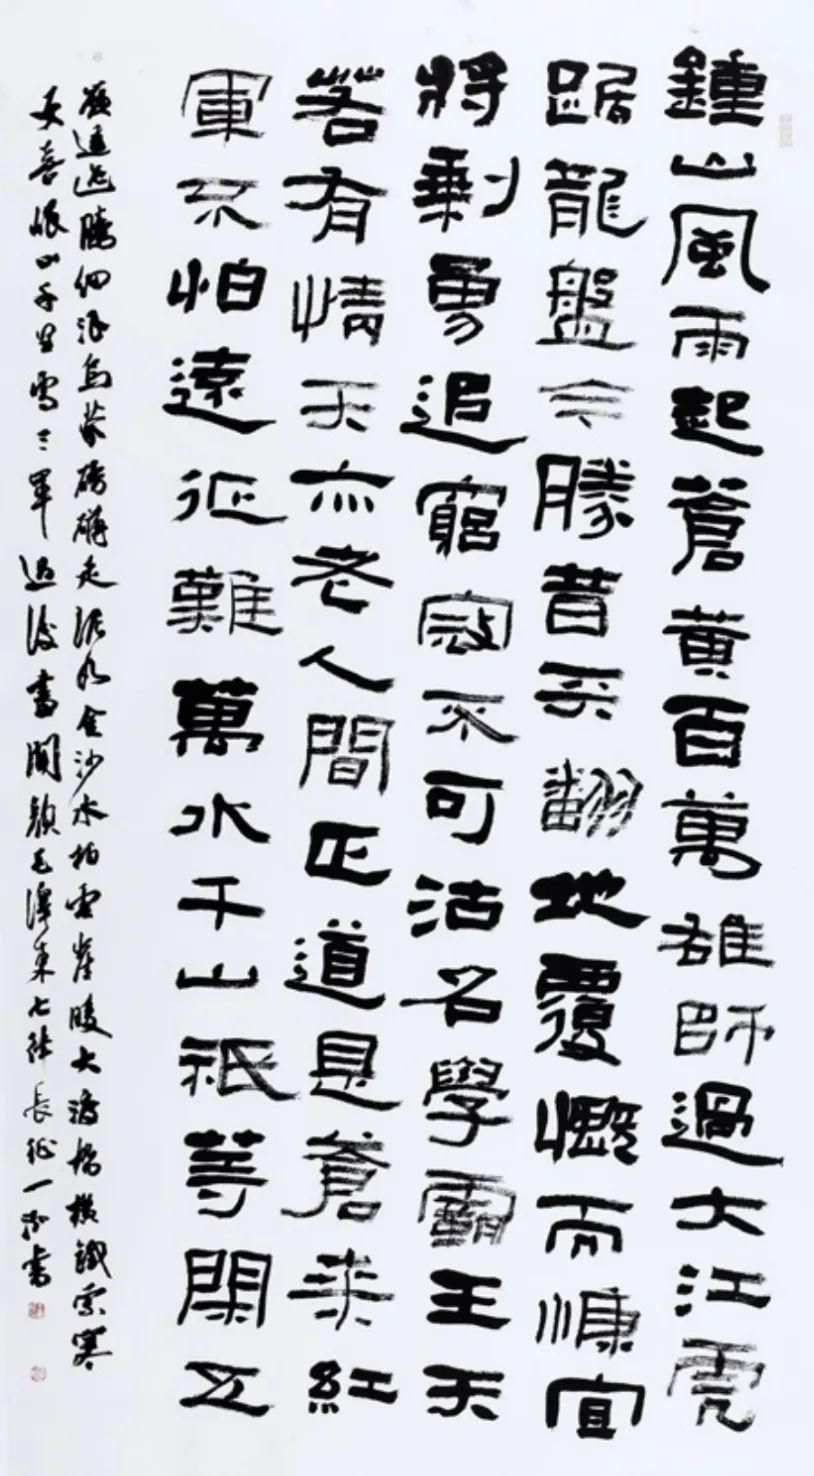 鍾山風雨起蒼黃百萬雄師過大江虎
踞龍盤今勝昔天翻地覆慨而慷宜
將剩勇追窮寇不可沽名學霸王天
若有情天亦老人間正道是蒼桑紅
軍不怕遠征難萬水千山祇等閑五
嶺逶迤騰細浪烏蒙磅礴走泥丸金沙水拍雲崖暖大渡橋橫鐵索寒
更喜岷山千里雪三軍過後盡開顏毛澤東七律長征一書